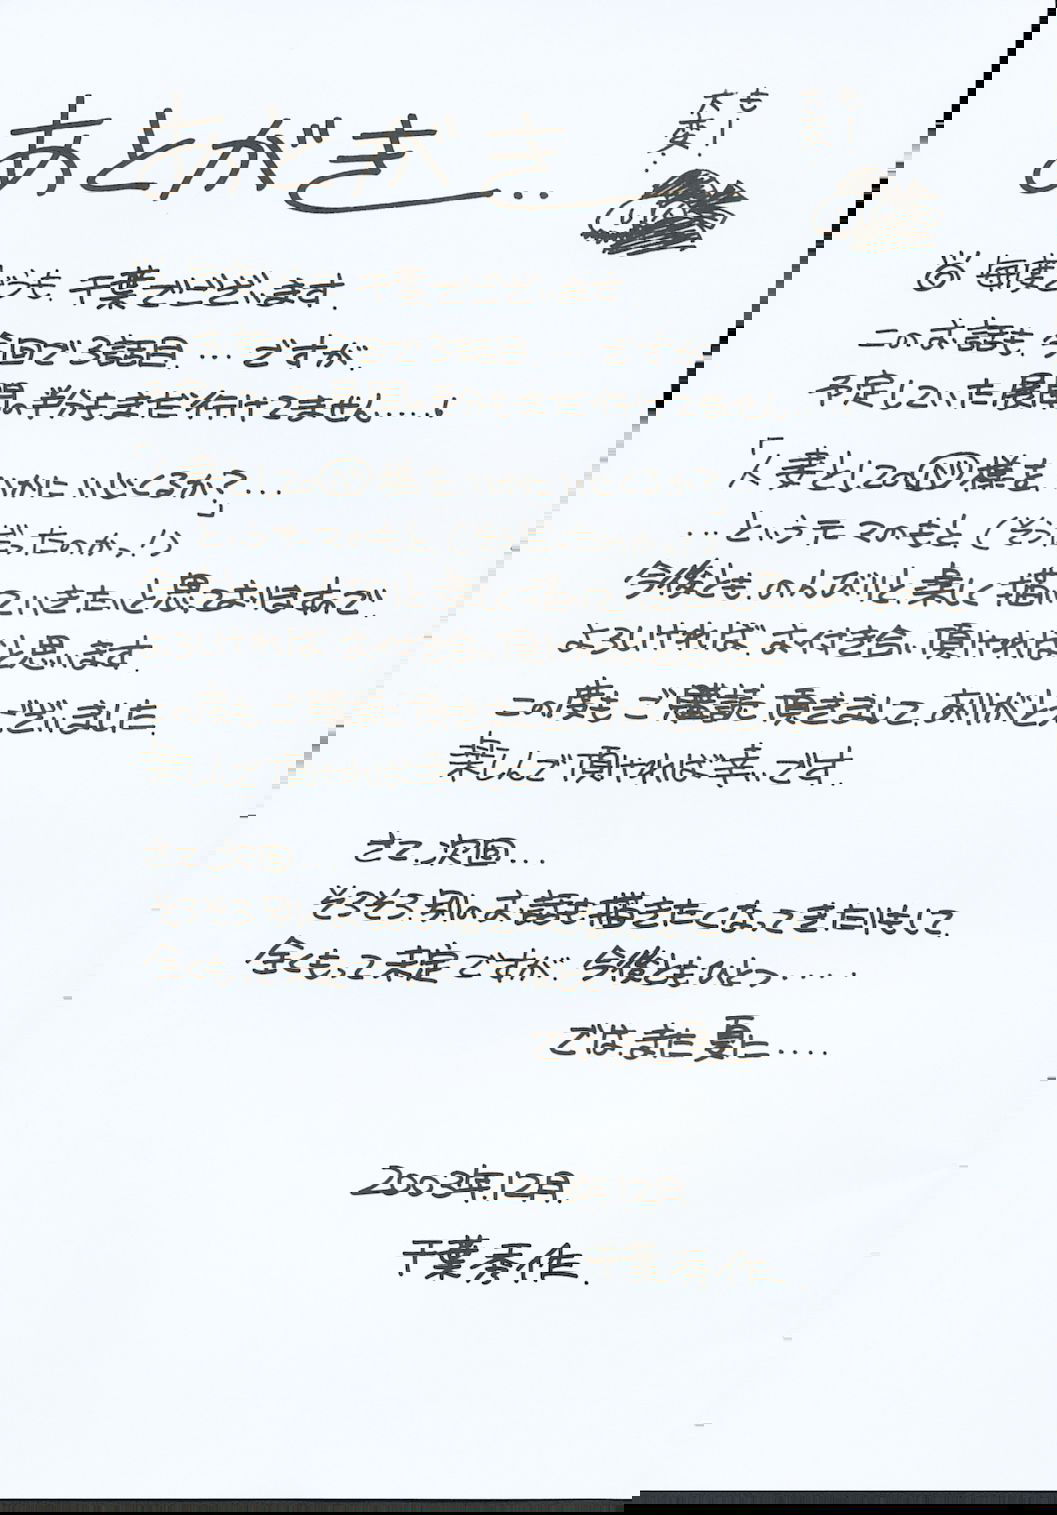 あとがき..
も
大変..
◎毎度どうも.千葉でございます.
このお話も.今回で3話目....ですが.
予定していた展開の半分もまだ行けてません.....!
「人妻としての 様を.
いかにいじくるか?」...
...というテーマのもと.(そうだったのかっ!)
今後とも.のんびりと.楽しく描いていきたいと思っておりますので.
よろしければ.お付き合い頂ければと思います.
この度も ご購読 頂きまして.ありがとうございました.
楽しんで頂ければ幸いです.
さて.次回...
そろそろ.別のお話も描きたくなってきたりもして.
全くもって未定ですが.今後ともひとつ.....
では.また夏に....
2003年.12月.
千葉秀作.